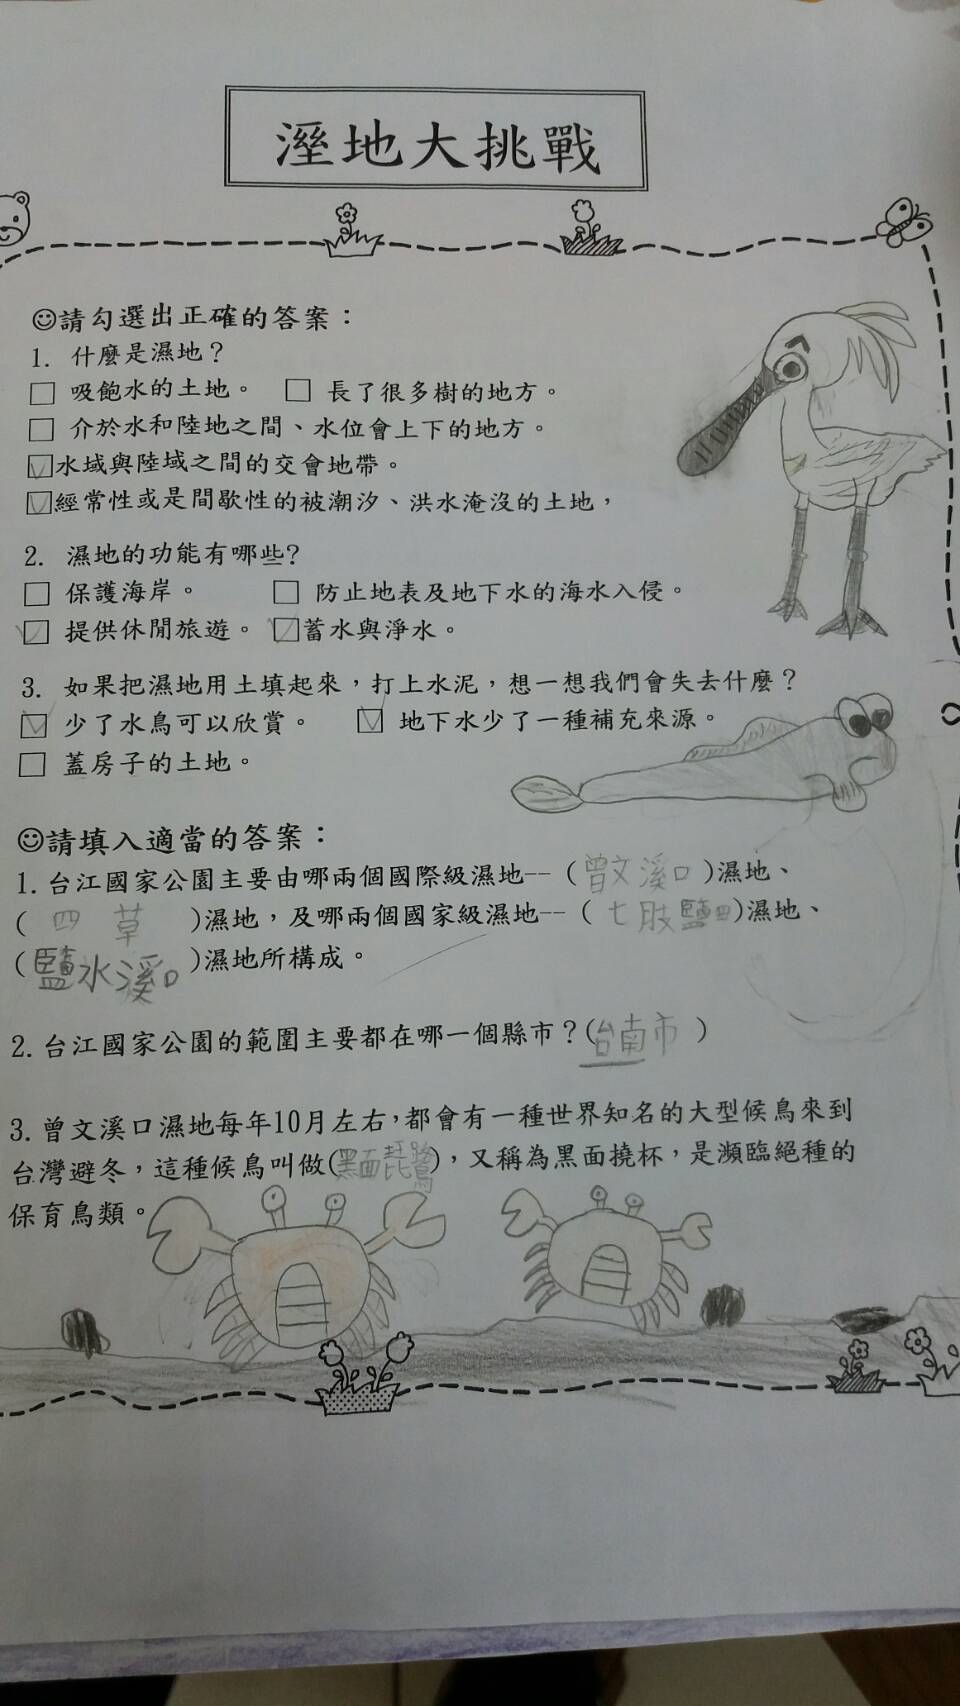 溼地大挑戰
☺請勾選出正確的答案：
1. 什麼是濕地？
□ 吸飽水的土地。 □ 長了很多樹的地方。
□ 介於水和陸地之間、水位會上下的地方。
☑水域與陸域之間的交會地帶。
☑經常性或是間歇性的被潮汐、洪水淹沒的土地，
2. 濕地的功能有哪些?
□ 保護海岸。 □ 防止地表及地下水的海水入侵。
☑ 提供休閒旅遊。 ☑蓄水與淨水。
3. 如果把濕地用土填起來，打上水泥，想一想我們會失去什麼？
☑ 少了水鳥可以欣賞。 ☑ 地下水少了一種補充來源。
□ 蓋房子的土地。
☺請填入適當的答案：
1. 台江國家公園主要由哪兩個國際級濕地--（曾文溪口）濕地、
（四草）濕地，及哪兩個國家級濕地--（七股鹽田）濕地、
（鹽水溪口）濕地所構成。
2. 台江國家公園的範圍主要都在哪一個縣市？（台南市）
3. 曾文溪口濕地每年10月左右，都會有一種世界知名的大型候鳥來到
台灣避冬，這種候鳥叫做（黑面琵鷺），又稱為黑面撓杯，是瀕臨絕種的
保育鳥類。